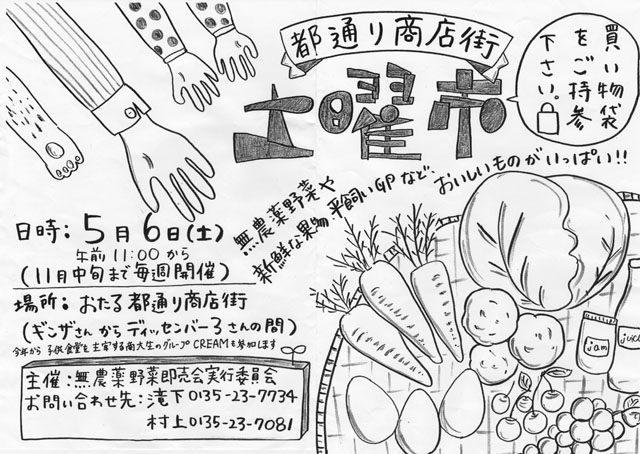 都通り商店街
土曜市
買い物袋
をご持参
下さい。
無農薬野菜や
新鮮な果物、平飼いGPなど、
おいしいものがいっぱい!!
日時:5月6日(土)
午前11:00から
(11月中旬まで毎週開催)
場所:おたる都通り商店街
(ギンザさんからディッセンバー3さんの間)
今年から子供食堂を主宰する商大生のグループCREAMも参加します
主催:無農薬野菜即売会実行委員会
お問い合わせ先:滝下0135-23-7734
村上0135-23-7081
jam
juice